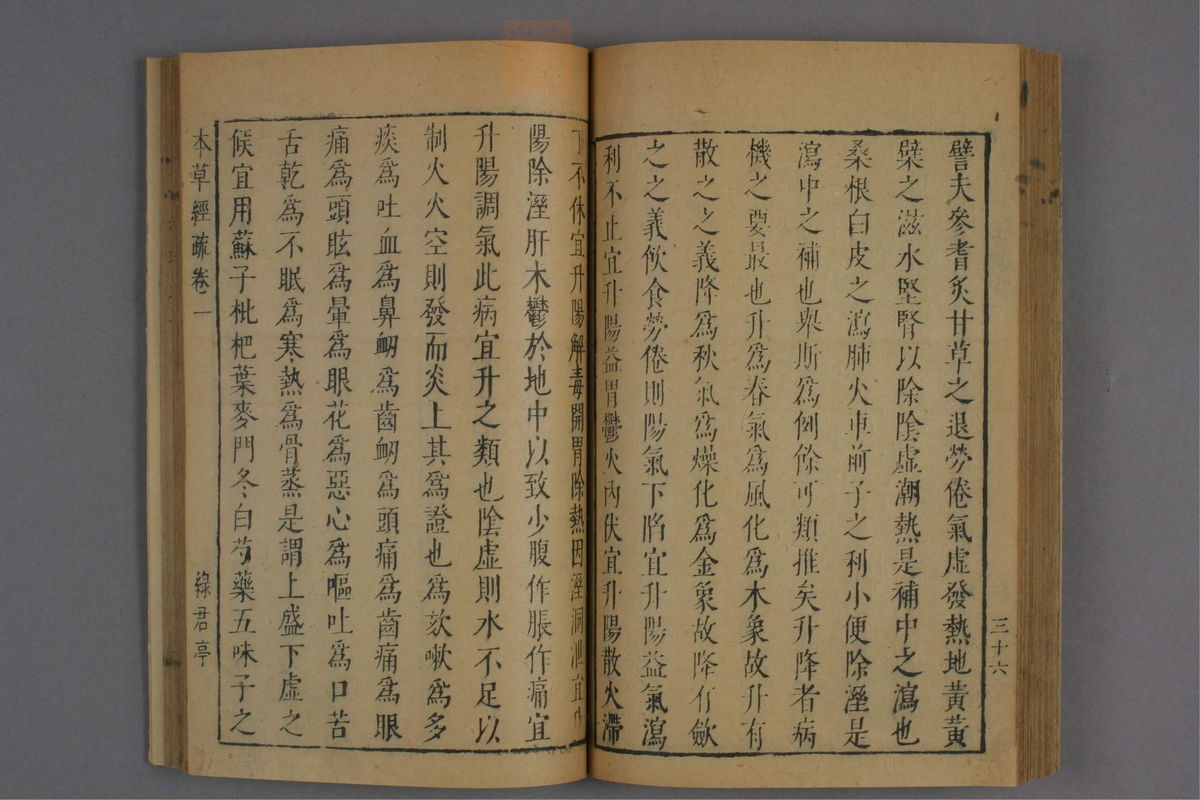 三十六
譬夫參耆炙甘草之退勞倦氣虛發熱地黃黃
檗之滋水堅腎以除陰虛潮熱是補中之瀉也
桑根白皮之瀉肺火車前子之利小便除溼是
瀉中之補也舉斯爲例餘可類推矣升降者病
機之要最也升爲春氣爲風化爲木象故升有
散之之義降爲秋氣爲燥化爲金象故降有斂
之之義飲食勞倦則陽氣下陷宜升陽益氣瀉
利不止宜升陽益胃鬱火內伏宜升陽散火滯
下不休宜升陽解毒開胃除熱因溼洞泄宜升
陽除溼肝木鬱於地中以致少腹作脹作痛宜
升陽調氣此病宜升之類也陰虛則水不足以
制火火空則發而炎上其爲證也爲欬嗽爲多
痰爲吐血爲鼻衂爲齒衂爲頭痛爲齒痛爲眼
痛爲頭眩爲暈爲眼花爲惡心爲嘔吐爲口苦
舌乾爲不眠爲寒熱爲骨蒸是謂上盛下虛之
候宜用蘇子枇杷葉麥門冬白芍藥五味子之
本草經疏卷一
綠君亭